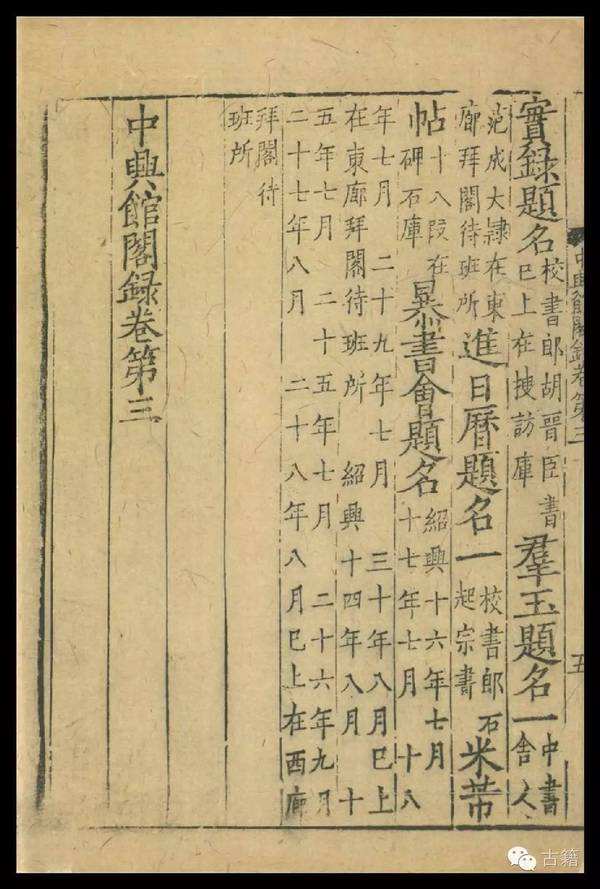 中興館閣録卷第三
五
實録題名校書郎胡晋臣書已上在搜訪庫羣玉題名一中書舍人
范成大隸在東廊拜閣待班所進日曆題名一校書郎石起宗書米芾
帖十八段在碑石庫暴書會題名紹興十六年七月十七年七月 十八
年七月 二十九年七月 三十年八月已上在東廊拜閣待班所 紹興十四年八月 十
五年七月 二十五年七月 二十六年九月二十七年八月 二十八年八月已上在西廊
拜閣待班所
中興館閣録卷第三
古籍